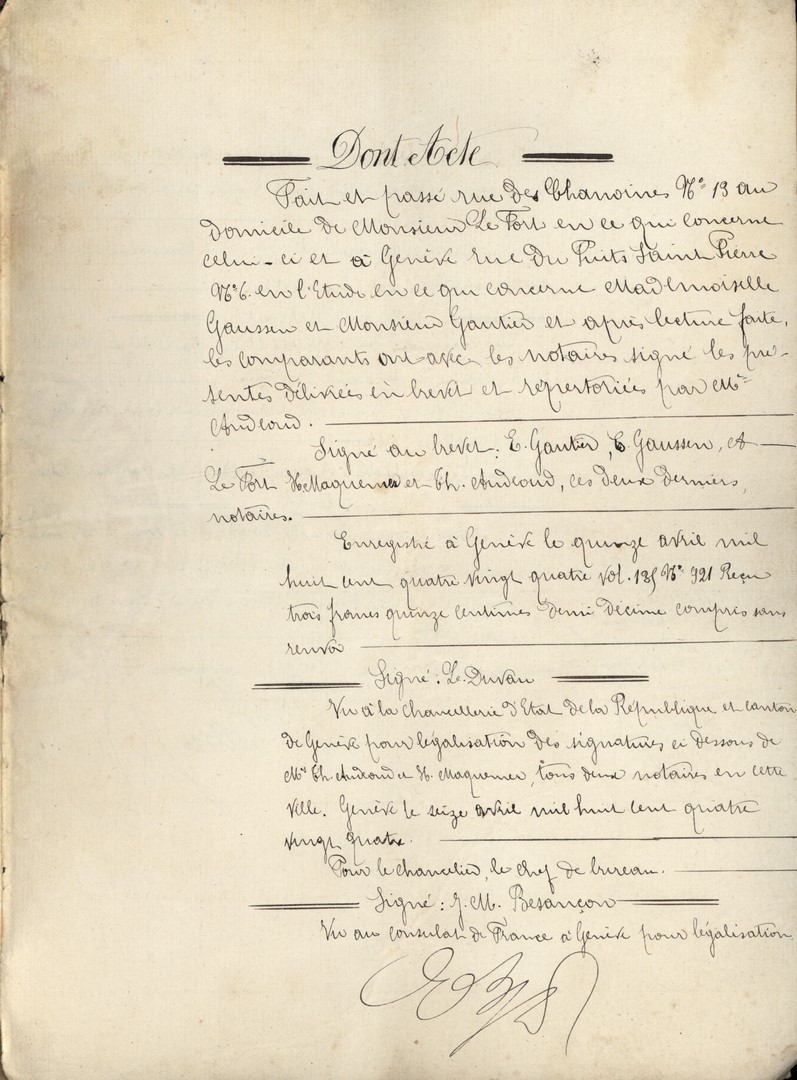 Dont Acte
Fait et passé rue des Chanoines N° 13 au
domicile de Monsieur Le Fort en ce qui concerne
celui-ci et à Genève rue du Puits Saint Pierre
N° 6. en l'Etude en ce qui concerne Mademoiselle
Gaussen et Monsieur Gautier et après lecture faite,
les comparants ont avec les notaires signé les pré-
sentes délivrées en brevet et répertoriées par Me
Audeoud.
Signé au brevet: E. Gautier, C. Gaussen, A
Le Fort H. Maquemer et Th. Audeoud, ces deux derniers,
notaires.
Enregistré à Genève le quinze avril mil
huit cent quatre vingt quatre vol. 185 N° 921 Reçu
trois francs quinze centimes demi décime compris sans
renvoi
Signé: Le Duvau
Vu à la Chancellerie d'Etat de la République et canton
de Genève pour légalisation des signatures ci dessous de
Mrs Th. Audeoud et H. Maquemer, tous deux notaires en cette
ville. Genève le seize avril mil huit cent quatre
vingt quatre.
Pour le chancelier, le chef de bureau.
Signé: J. M. Besançon
Vu au consulat de France à Genève pour légalisation